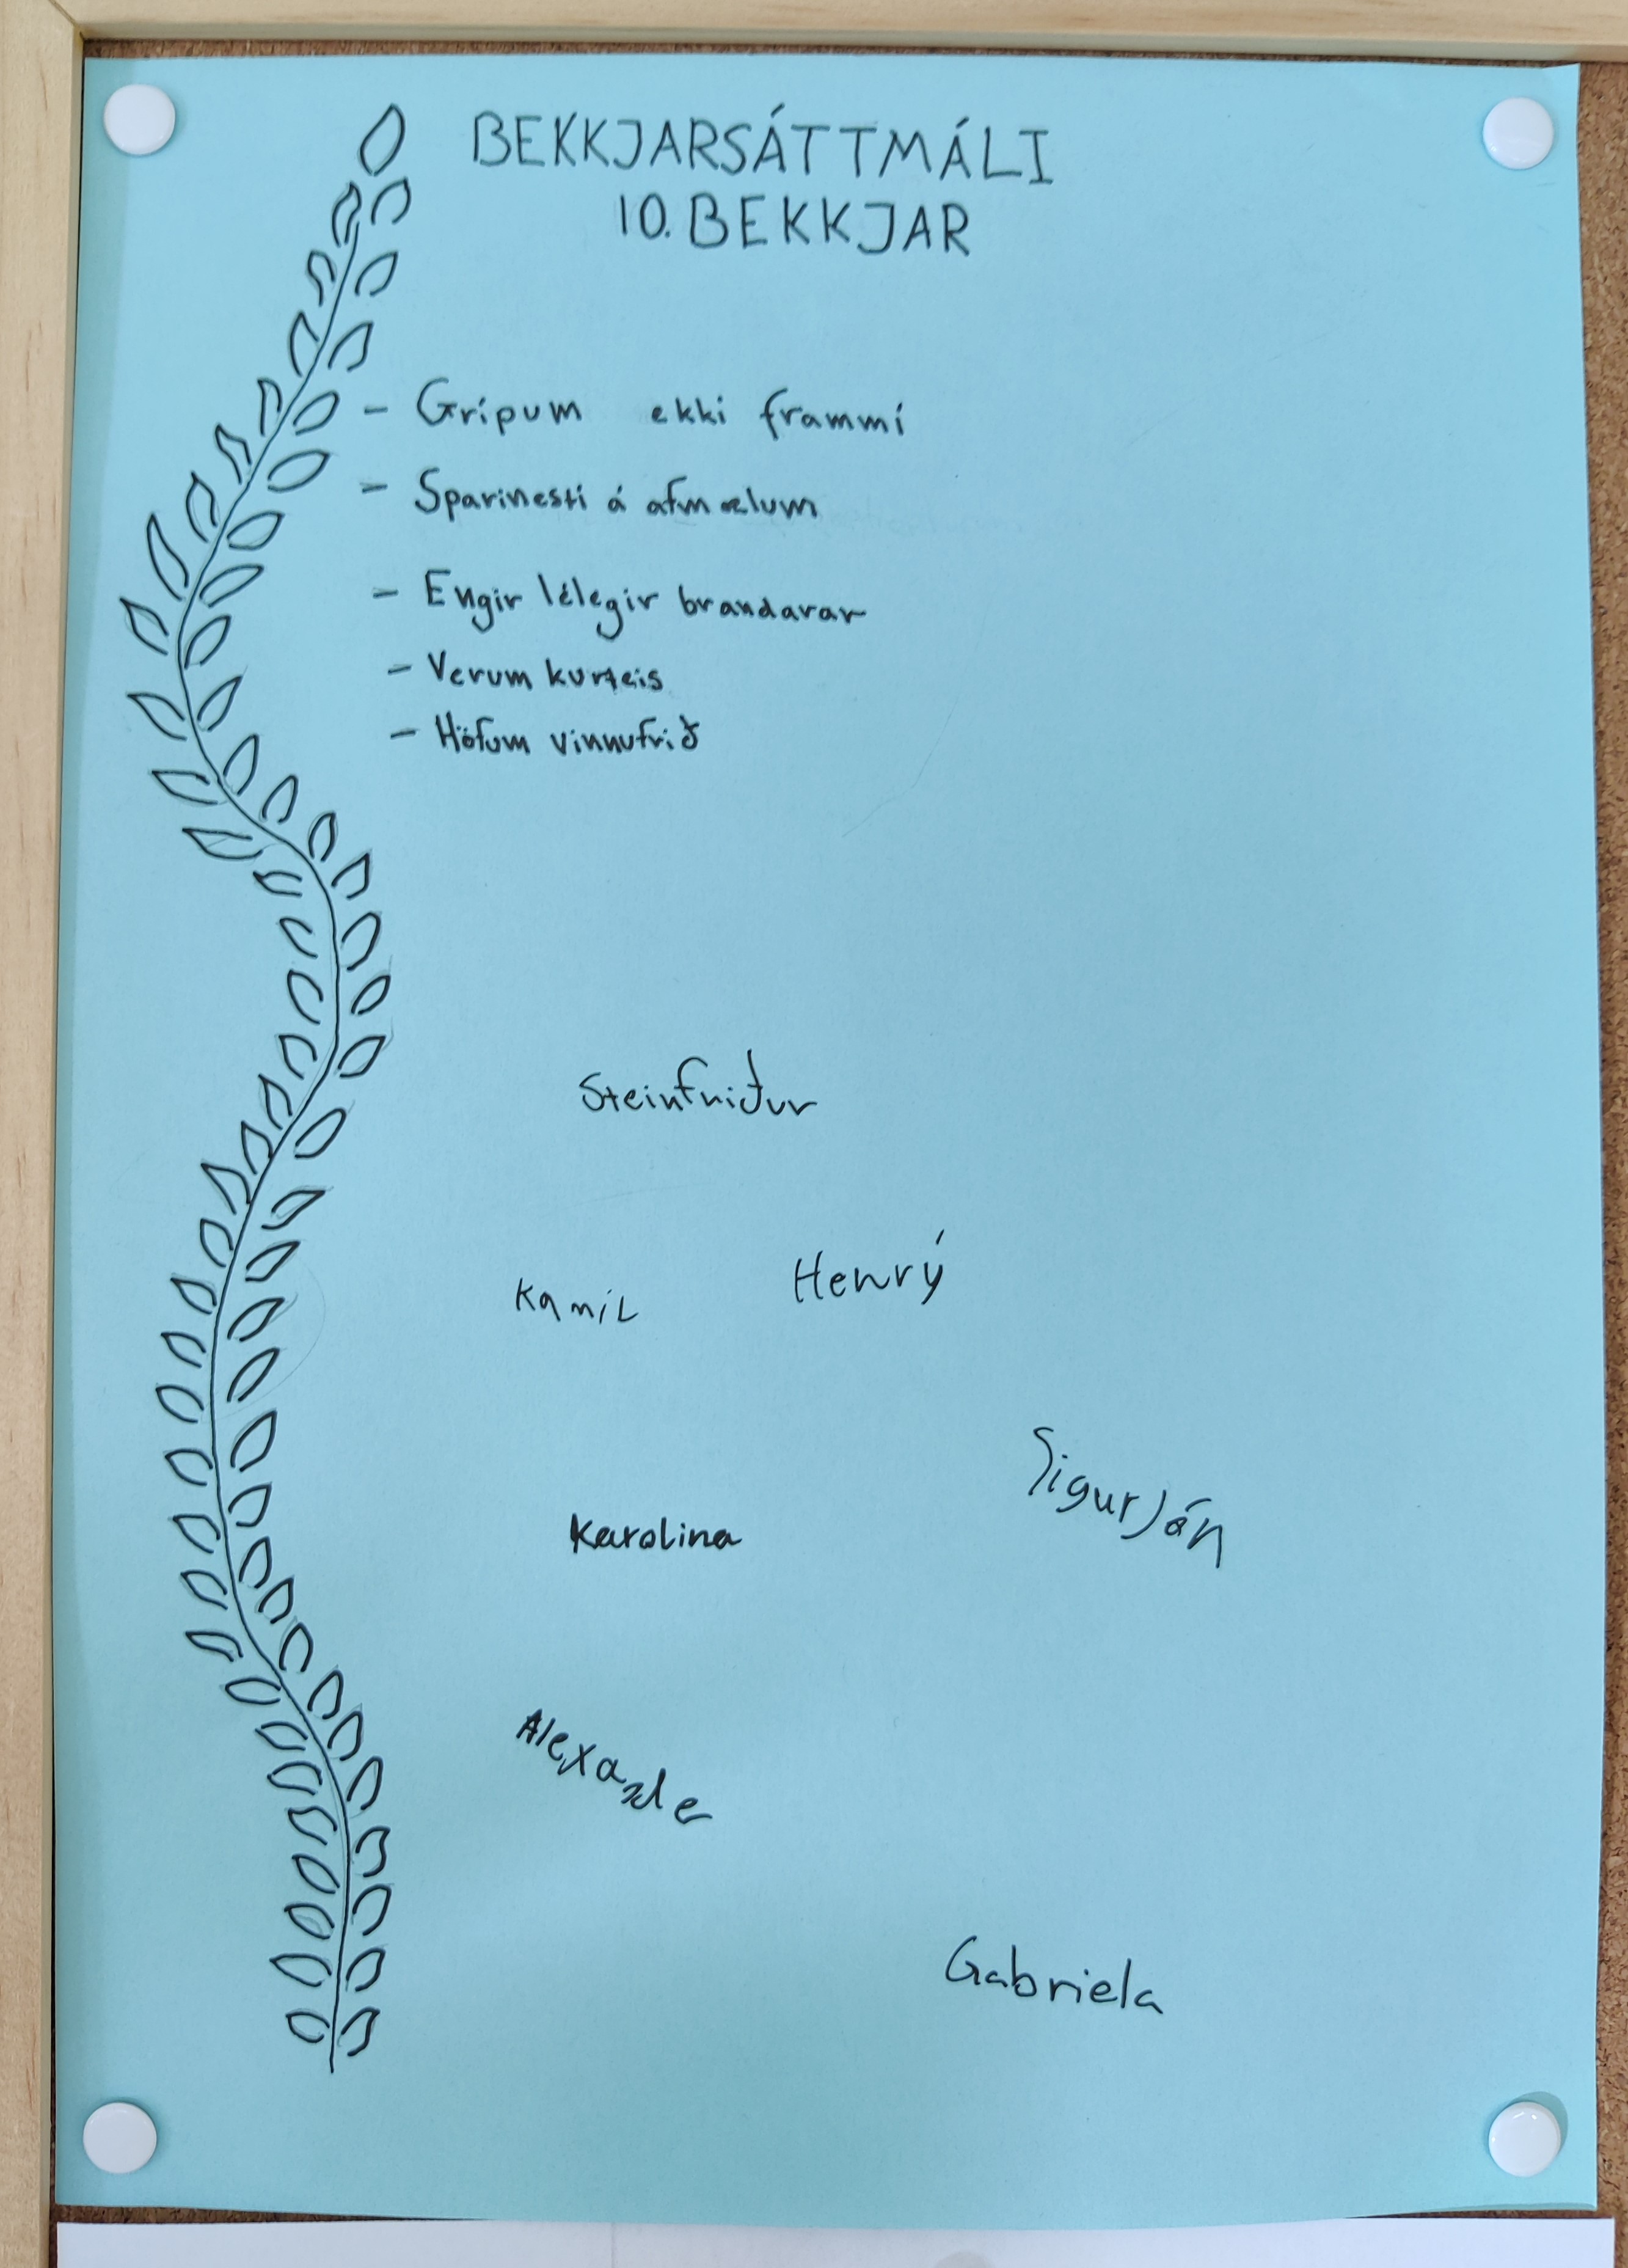 BEKKJARSÁTTMÁLI
10. BEKKJAR
- Grípum ekki frammí
- Sparinesti á afmælum
- Engir lélegir brandarar
- Verum kurteis
- Höfum vinnufrið
Steinfriður
Kamil Henrý
Sigurján
Karolina
Alexander
Gabriela